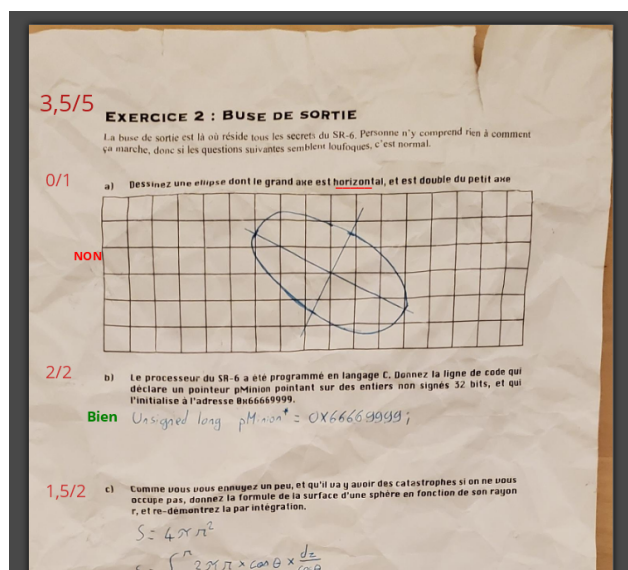 3,5/5
EXERCICE 2 : BUSE DE SORTIE
La buse de sortie est là où réside tous les secrets du SR-6. Personne n'y comprend rien à comment
ça marche, donc si les questions suivantes semblent loufoques, c'est normal.
0/1
a) Dessinez une ellipse dont le grand axe est horizontal, et est double du petit axe
NON
2/2
b) Le processeur du SR-6 a été programmé en langage C. Donnez la ligne de code qui
déclare un pointeur pMinion pointant sur des entiers non signés 32 bits, et qui
l'initialise à l'adresse 0x66669999.
Bien Unsigned long pMinion* = 0X66669999;
1,5/2
c) Comme vous vous ennuyez un peu, et qu'il va y avoir des catastrophes si on ne vous
occupe pas, donnez la formule de la surface d'une sphère en fonction de son rayon
r, et re-démontrez la par intégration.
S = 4πr²